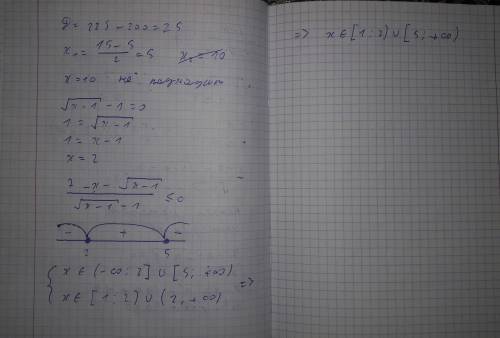 D = 225 - 200 = 25
x₁ = (15 - 5)/2 = 5   x₂ = 10
x = 10 не подходит
√(x - 1) - 1 = 0
1 = √(x - 1)
1 = x - 1
x = 2
(7 - x - √(x-1))/(√(x-1) - 1) ≤ 0
- + -
2 5
{ x ∈ (-∞; 2] ∪ [5; +∞)
x ∈ [1; 2) ∪ (2, +∞) =>
=> x ∈ [1; 2) ∪ [5; +∞)